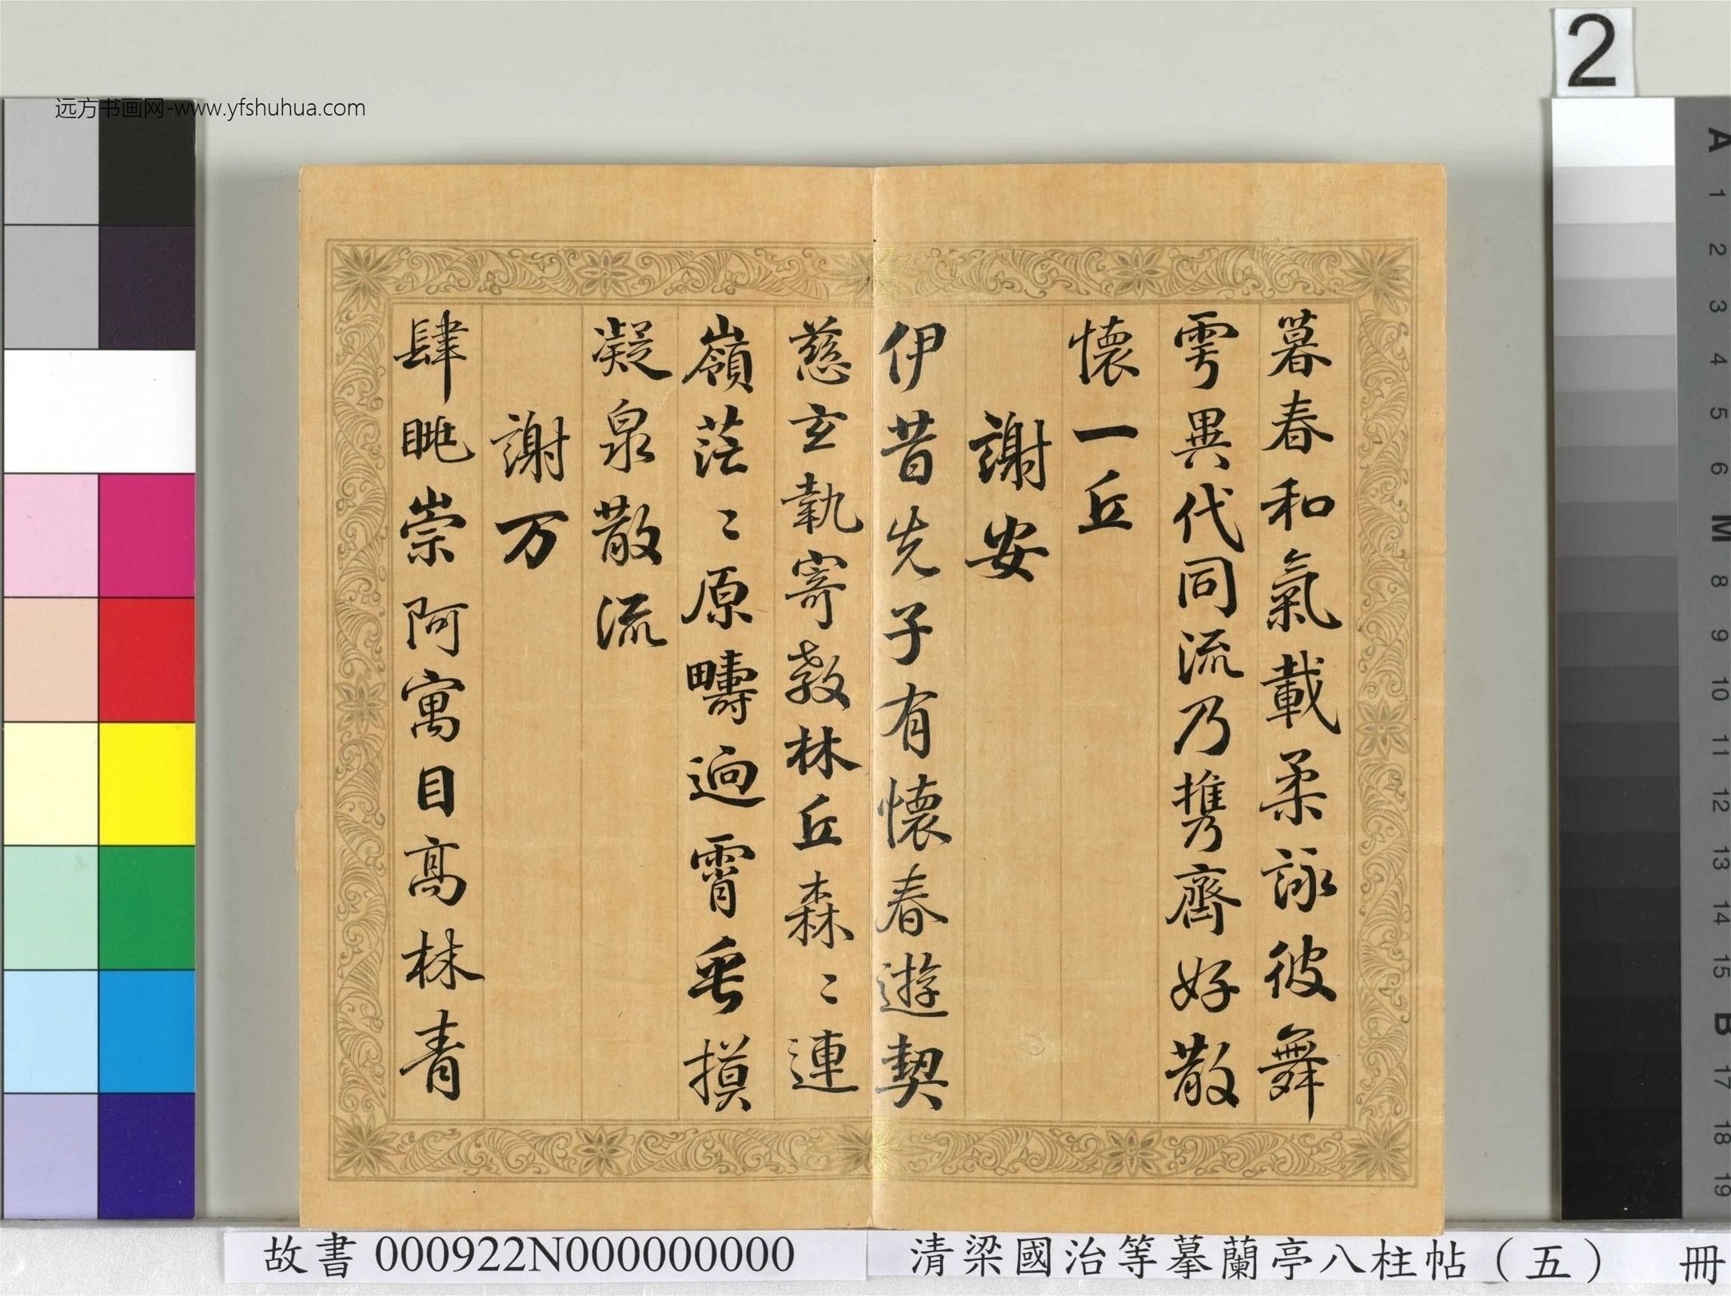 暮春和氣載柔詠彼舞
雩異代同流乃攜齊好散
懷一丘
謝安
伊昔先子有懷春遊契
慈玄執寄敖林丘森〻連
嶺茫〻原疇逈霄垂摸
凝泉散流
謝万
肆眺崇阿寓目高林青
远方书画网-www.yfshuhua.com
2
A
1
2
3
4
5
6
M
8
9
10
11
12
13
14
15
B
17
18
19
故書 000922N000000000
清梁國治等摹蘭亭八柱帖（五） 冊